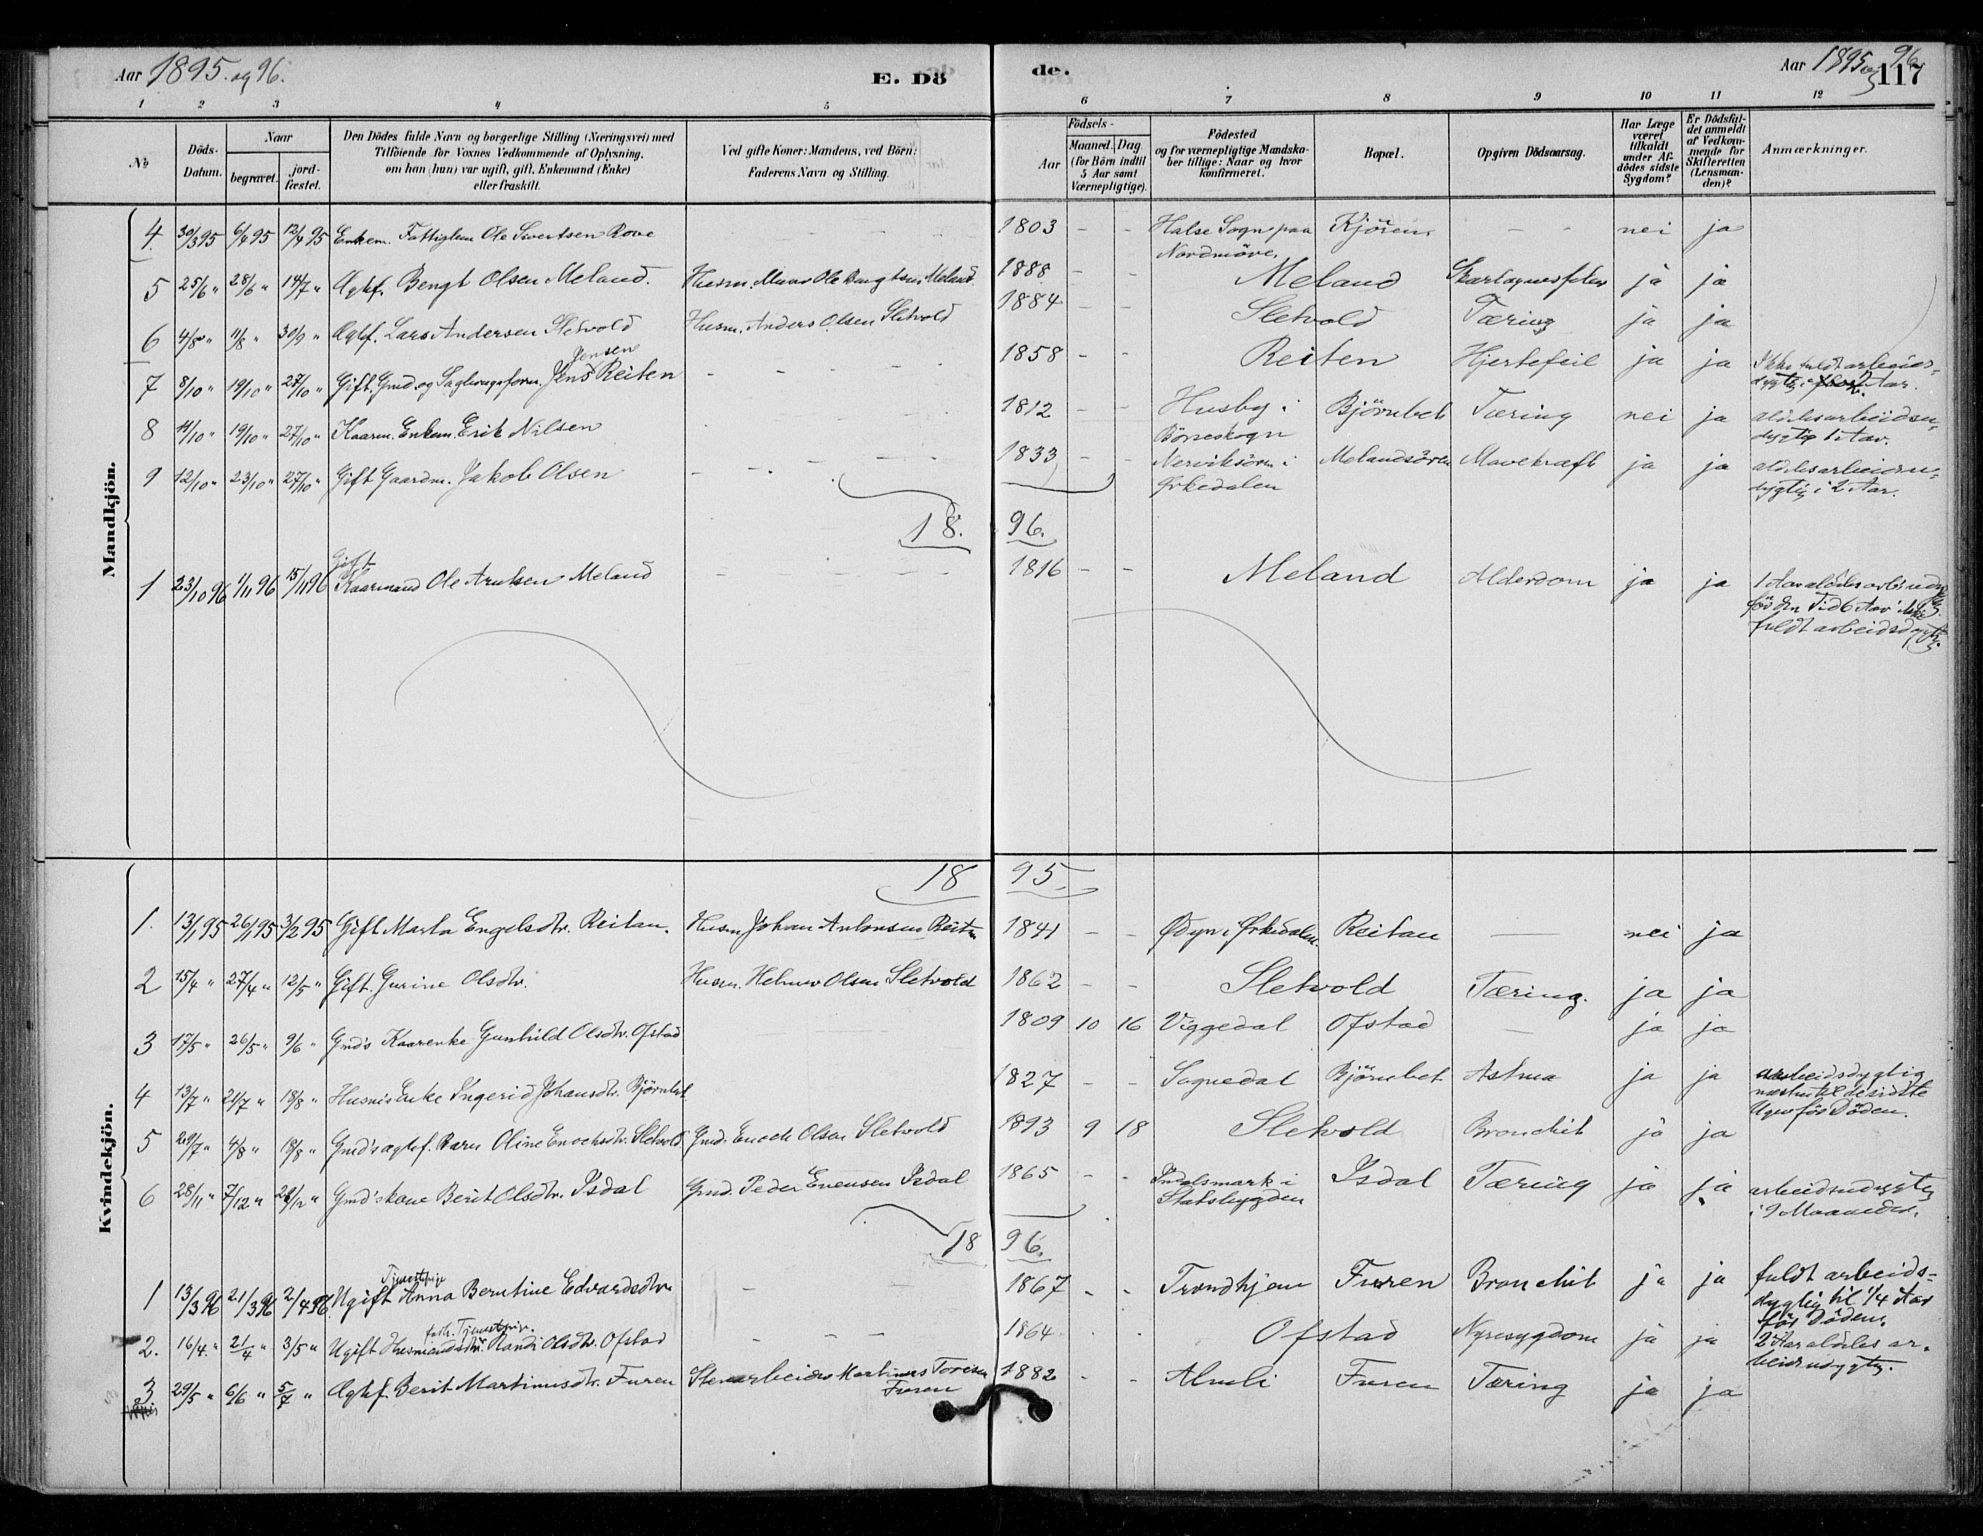 Aar 1895 og 96.
E. Dö
de.
Aar 1895 og 96.
117
1 2 3 4 5 6 7 8 9 10 11 12
No
Döds-Datum.
Naar
begravet.
jord-fæstet.
Den Dödes fulde Navn og borgerlige Stilling (Næringsvei) med
Tilföiende for Voxnes Vedkommende af Oplysning,
om han (hun) var ugift, gift, Enkemand (Enke)
eller fraskilt.
Ved gifte Koner: Mandens, ved Börn:
Faderens Navn og Stilling.
Födsels-
Aar
Maaned. Dag
(for Börn indtil
5 Aar samt
Værnepligtige).
Födested
og for værnepligtige Mandska-
ber tillige: Naar og hvor
konfirmeret.
Bopæl.
Opgiven Dödsaarsag.
Har Læge
været
tilkaldt
under Af-
dödes sidste
Sygdom?
Er Dödsfal-
det anmeldt
af Vedkom-
mende for
Skifteretten
(Lensman-
den)?
Anmærkninger.
Mandkjön.
4 30/3 95 6/4 95 12/4 95 Enkem. Fattiglem Ole Sivertsen Rove 1803 - - Halse Sogn paa Nordmöre Kjören - - nei ja
5 25/6 " 28/6 " 14/7 " Ægtef. Bengt Olsen Meland. Husm. Ole Bengtsen Meland 1888 - - Meland ja ja
6 4/8 " 11/8 " 30/9 " Ægtef. Lars Andersen Sletvold Husm. Anders Olsen Sletvold 1884 - - Sletvold Tæring ja ja
7 8/10 " 19/10 " 27/10 " Gift, Gmd. og Jens Jensen Reiten - - - 1858 - - Reiten Hjertefeil ja ja Ikke fuldt arbeids-
dygtig i Aar.
8 11/10 " 19/10 " 27/10 " Kaarm. Enkem. Erik Nilsen 1812 - - Husby i Börseskogn Björnbet Tæring nei ja aldeles arbeidsu-
dygtig 1 Aar.
9 12/10 " 23/10 " 27/10 " Gift Gaardm. Jakob Olsen - - - 1833 - - Nerviksören i Örkedalen Melandsören Mavekræft ja ja aldeles arbeidsu-
dygtig i 2 Aar.
18. 96.
1 23/10 96 1/11 96 15/11 96 Gift Kaarmand Ole Arntsen Meland - - - 1816 - - Meland Alderdom ja ja 1 Aar aldeles
för den Tid 6 Aar ikke
fuldt arbeidsdygtig.
Kvindekjön.
18 95.
1. 13/1 95 26/1 95 3/2 95 Gift Marta Engelsdtr. Reitan. Husm. Johan Antonsen Reitan 1841 - - i Ørkedalen. Reitan — nei ja
2 15/4 " 27/4 " 12/5 " Gift. Gurine Olsdtr. Husm. Helmer Olsen Sletvold 1862 - - Sletvold Tæring. ja ja
3 17/5 " 26/5 " 9/6 " Gmd's Kaarenke Gunhild Olsdtr. Ofstad 1809 10 16 Viggedal Ofstad — ja ja
4 13/7 " 21/7 " 18/8 " Husm's Enke Ingerid Johansdtr. Björnbet 1827 - - Sognedal Björnbet Astma ja ja arbeidsdygtig
næsten til de sidste
Uger för Döden.
5 29/7 " 4/8 " 18/8 " Gmd's ægtef. Barn Oline Enochsdtr. Sletvold Gmd. Enoch Olsen Sletvold 1893 9 18 Sletvold Bronchit ja ja
6 28/11 " 7/12 " Gmd's kone Berit Olsdtr. Isdal Gmd. Peder Evensen Isdal 1865 - - i Stadsbygden Isdal Tæring ja ja arbeidsudygtig
i 9 Maaneder.
18 96.
1 13/3 96 21/3 96 2/4 96 Ugift Tjenestpige Anna Berntine Edvardsdtr. - - 1867 - - Trondhjem Furen Bronchit ja ja fuldt arbeids-
dygtig til 1/4 Aar
för Döden.
2. 16/4 " 3/5 " Ugift Husmandsdtr. forh. Tjenestpige. Randi Olsdtr. Ofstad - - - 1864 - - Ofstad Nyresygdom ja ja 2 Aar aldeles ar-
beidsudygtig.
3 29/5 " 6/6 " 5/7 " Ægtef. Berit Martinusdtr. Furen Stenarbeider Martinus Toresen Furen 1882 - - Almli Furen Tæring ja ja